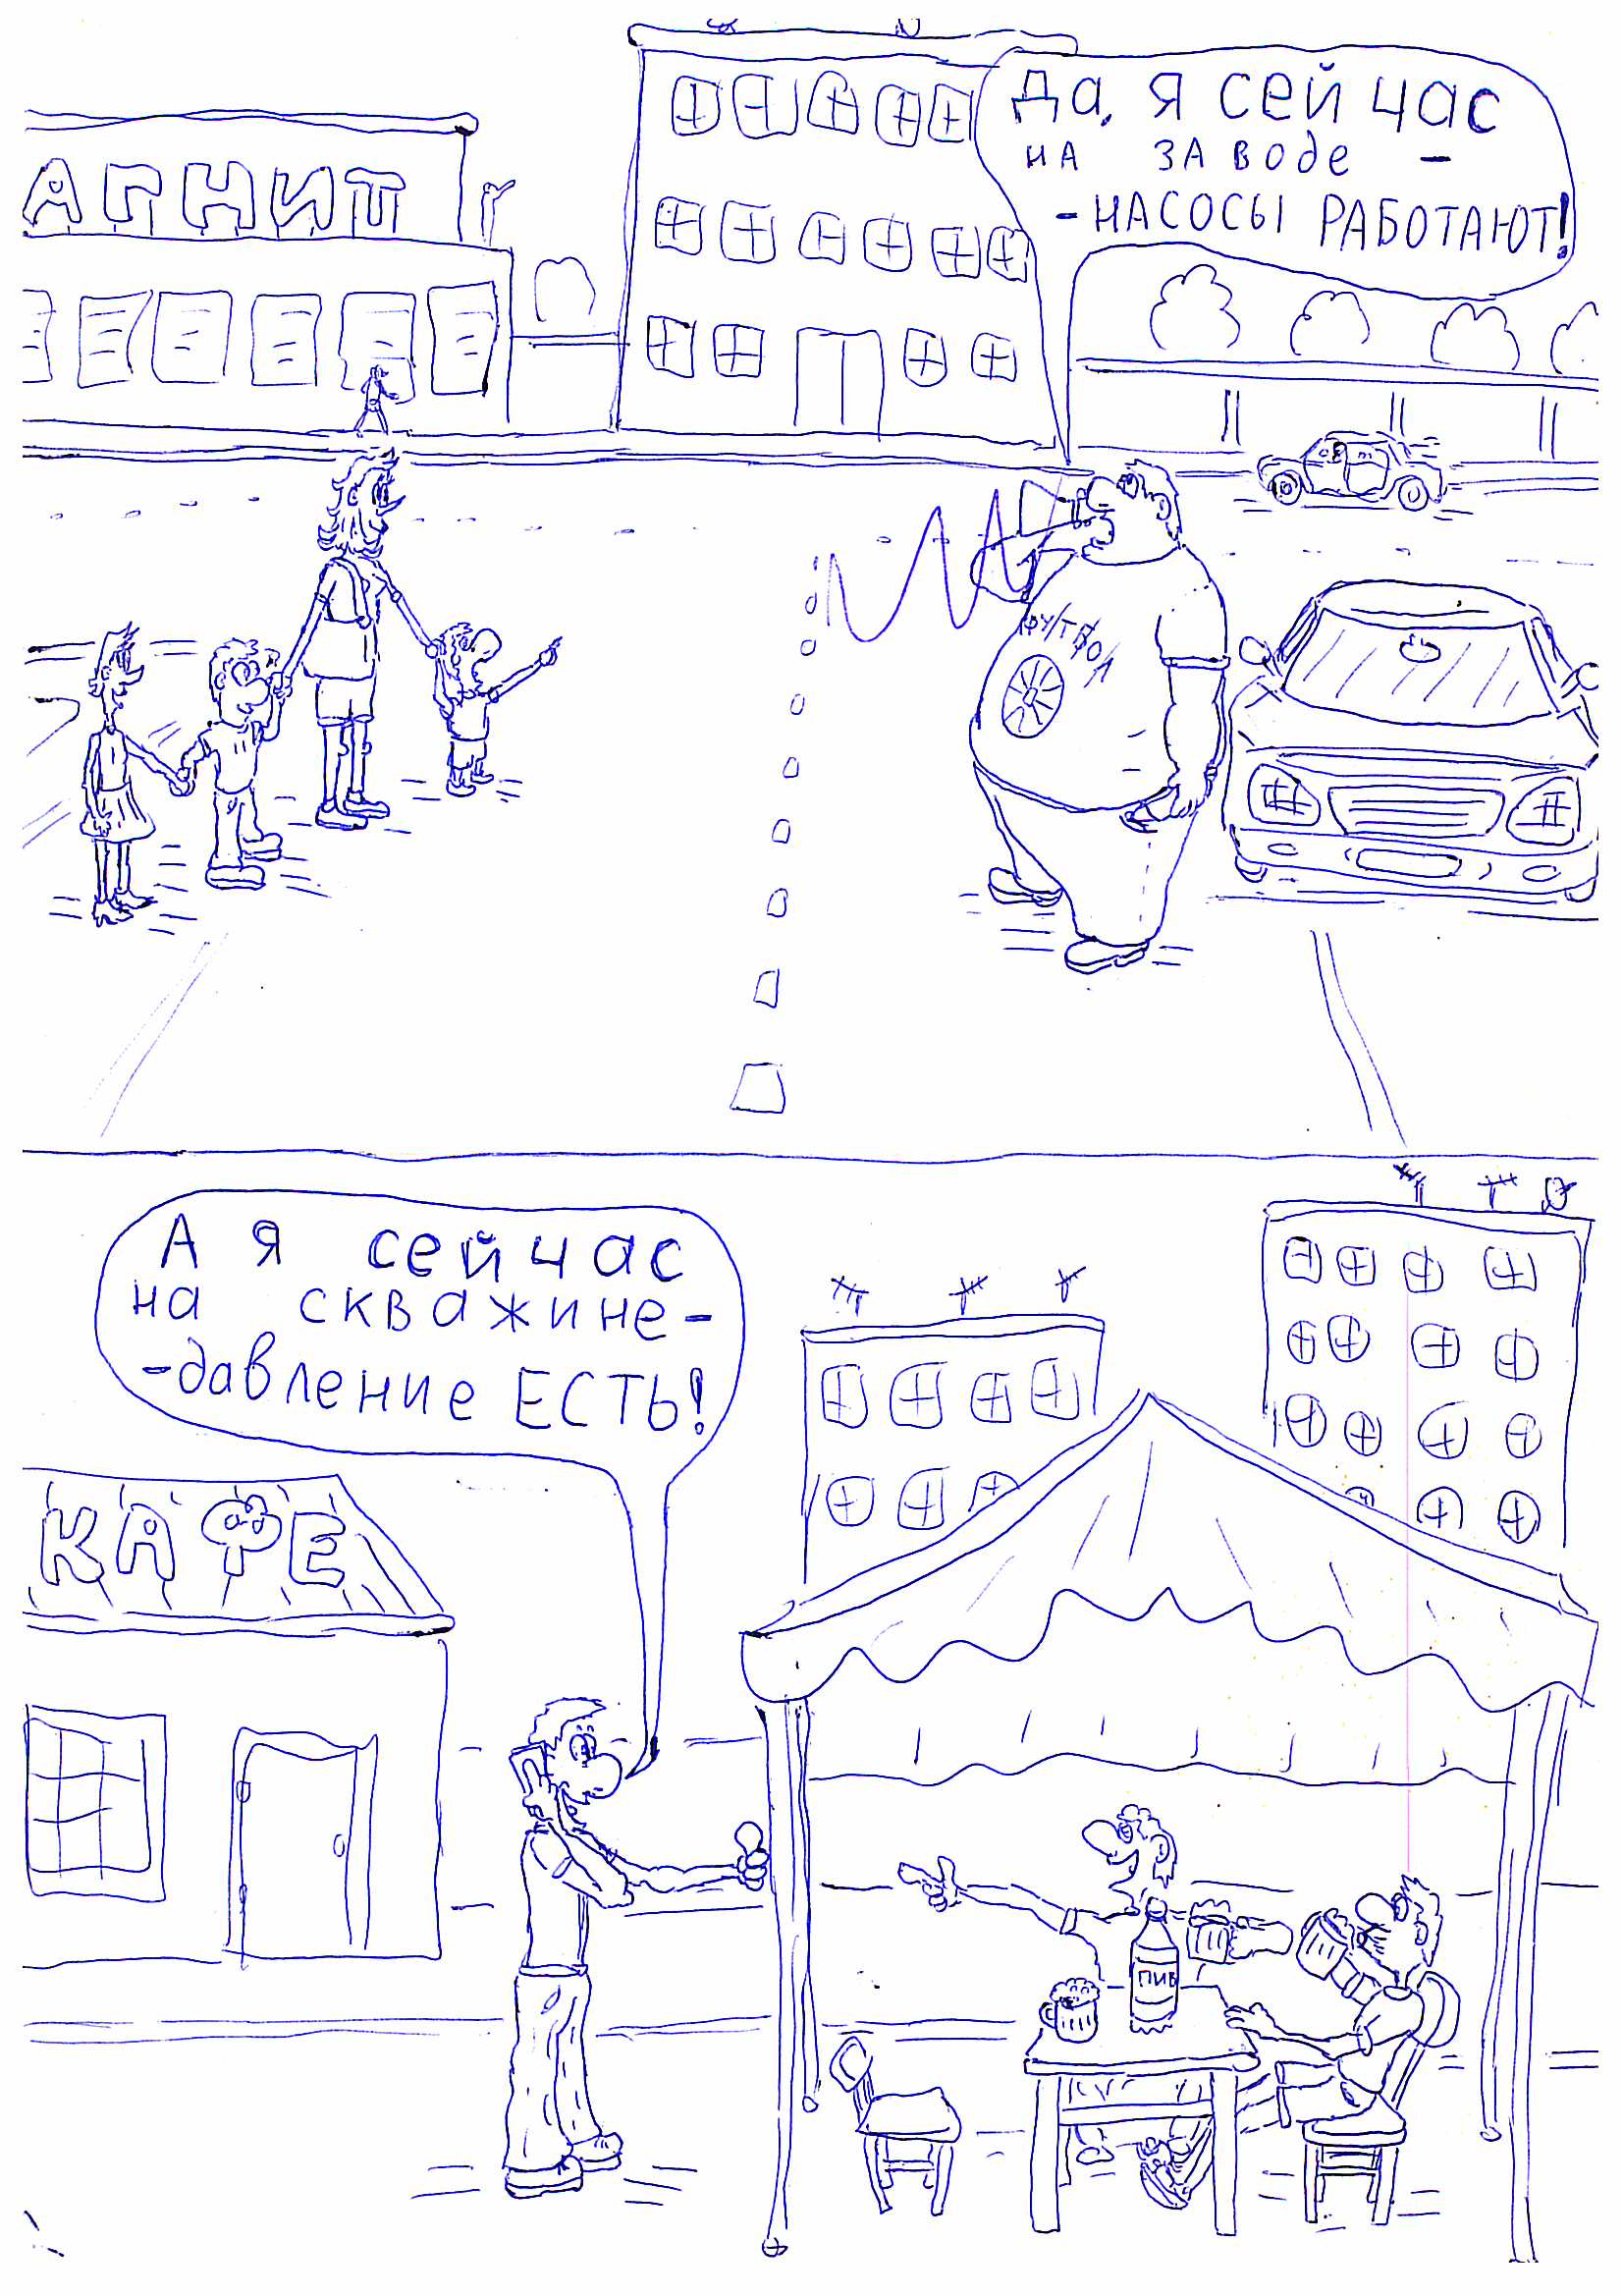 АГНИТ
Да, я сейчас
на заводе -
- НАСОСЫ РАБОТАЮТ!
ФУТБОЛ
А я сейчас
на скважине -
- давление ЕСТЬ!
КАФЕ
ПИВ